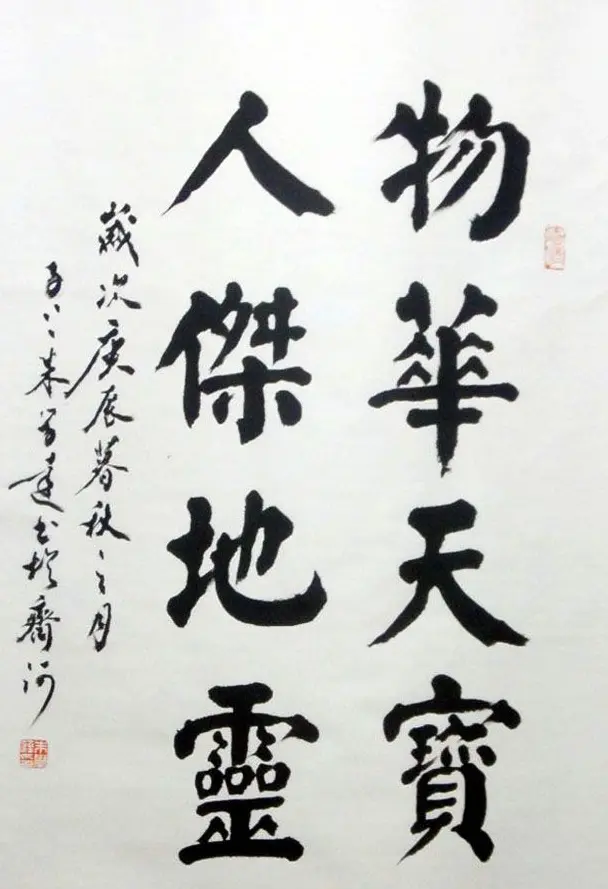 物華天寶
人傑地靈
歲次庚辰暮秋之月
朱學達書於齊河